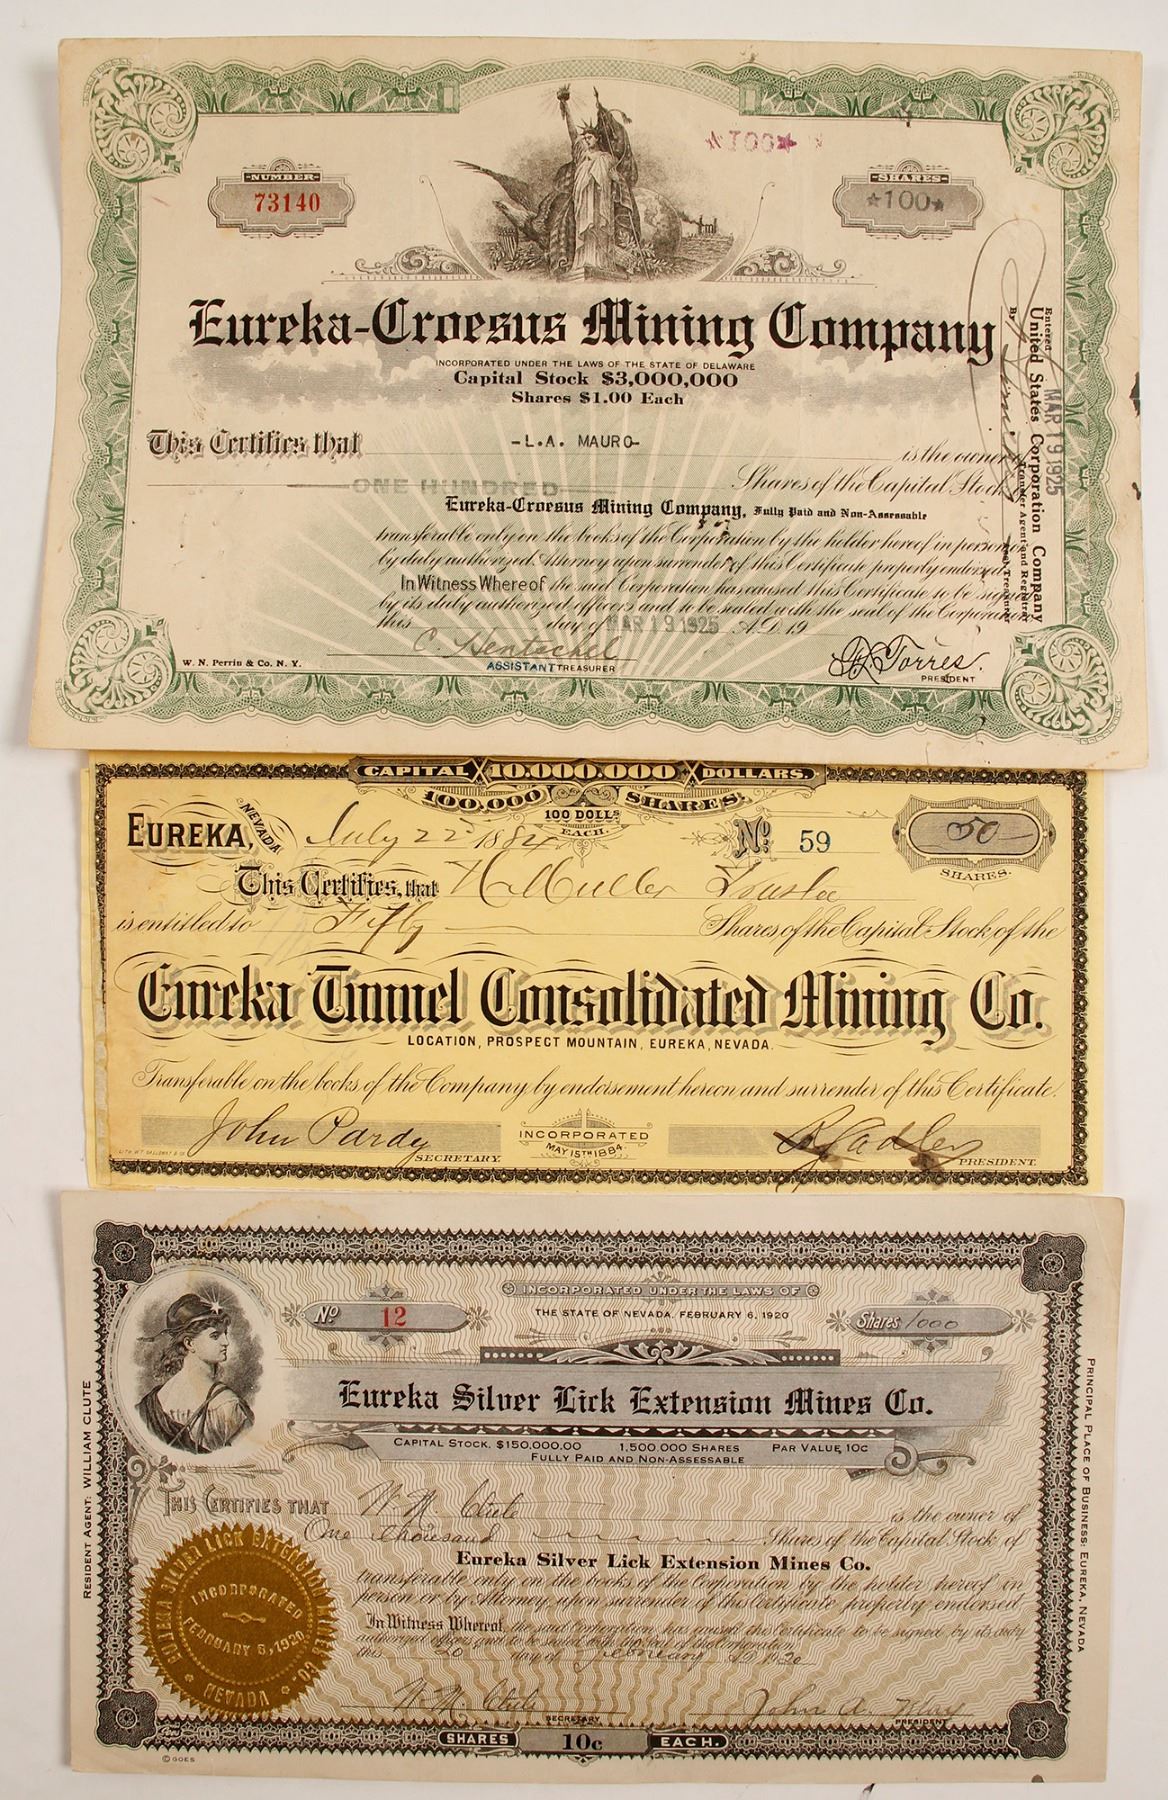 ★100★
NUMBER
73140
SHARES
★100★
Eureka-Croesus Mining Company
INCORPORATED UNDER THE LAWS OF THE STATE OF DELAWARE
Capital Stock $3,000,000
Shares $1.00 Each
This Certifies that -L.A. MAURO- is the owner of
ONE HUNDRED Shares of the Capital Stock
Eureka-Croesus Mining Company, Fully Paid and Non-Assessable
transferable only on the books of the Corporation by the holder hereof in person or
by duly authorized Attorney upon surrender of this Certificate properly endorsed.
In Witness Whereof the said Corporation has caused this Certificate to be signed
by its duly authorized officers and to be sealed with the seal of the Corporation
this day of MAR 19 1925 A.D. 19
C. Hentschel
ASSISTANT TREASURER
Torres.
PRESIDENT
W. N. Perrin & Co. N. Y.
Entered MAR 19 1925
United States Corporation Company
Transfer Agent and Registrar
By
CAPITAL 10.000.000 DOLLARS.
100.000 SHARES.
100 DOLLS
EACH.
EUREKA, NEVADA July 22 1884
No 59
50
SHARES.
This Certifies, that Muller Trustee
is entitled to Fifty Shares of the Capital Stock of the
Eureka Tunnel Consolidated Mining Co.
LOCATION, PROSPECT MOUNTAIN, EUREKA, NEVADA.
Transferable on the books of the Company by endorsement hereon and surrender of this Certificate.
John Pardy
SECRETARY.
INCORPORATED
MAY 15TH 1884.
Sadler
PRESIDENT.
INCORPORATED UNDER THE LAWS OF
THE STATE OF NEVADA. FEBRUARY 6, 1920
No 12
Shares 1000
Eureka Silver Lick Extension Mines Co.
CAPITAL STOCK, $150,000.00 1,500.000 SHARES PAR VALUE, 10c
FULLY PAID AND NON-ASSESSABLE
THIS CERTIFIES THAT W. M. Clute is the owner of
One thousand Shares of the Capital Stock of
Eureka Silver Lick Extension Mines Co.
transferable only on the books of the Corporation by the holder hereof in
person or by Attorney upon surrender of this Certificate properly endorsed.
In Witness Whereof, the said Corporation has caused this Certificate to be signed by its duly
authorized officers and to be sealed with the Seal of the Corporation
this 20 day of February A.D. 1920
W. M. Clute
SECRETARY
John A.
PRESIDENT
SHARES 10c EACH.
© GOES
RESIDENT AGENT: WILLIAM CLUTE
PRINCIPAL PLACE OF BUSINESS: EUREKA, NEVADA
EUREKA SILVER LICK EXTENSION MINES CO.
INCORPORATED
FEBRUARY 6, 1920
NEVADA